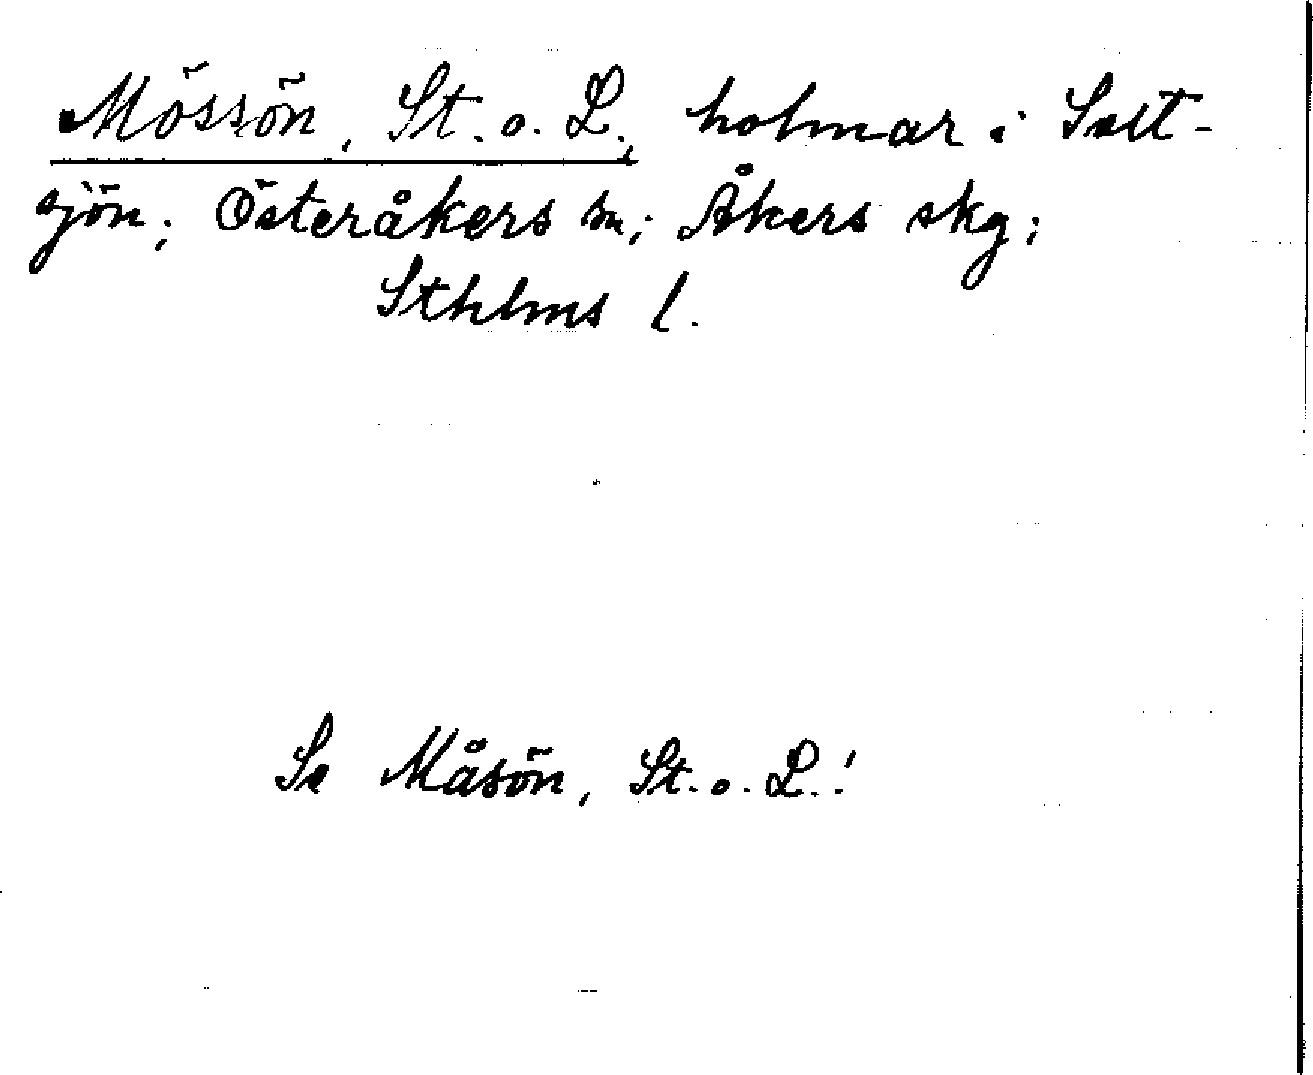 Mössön, St. o. L., holmar i Salt-
sjön; Österåkers sn; Åkers skg;
Sthlms l.
Se Måsön, St. o. L.!